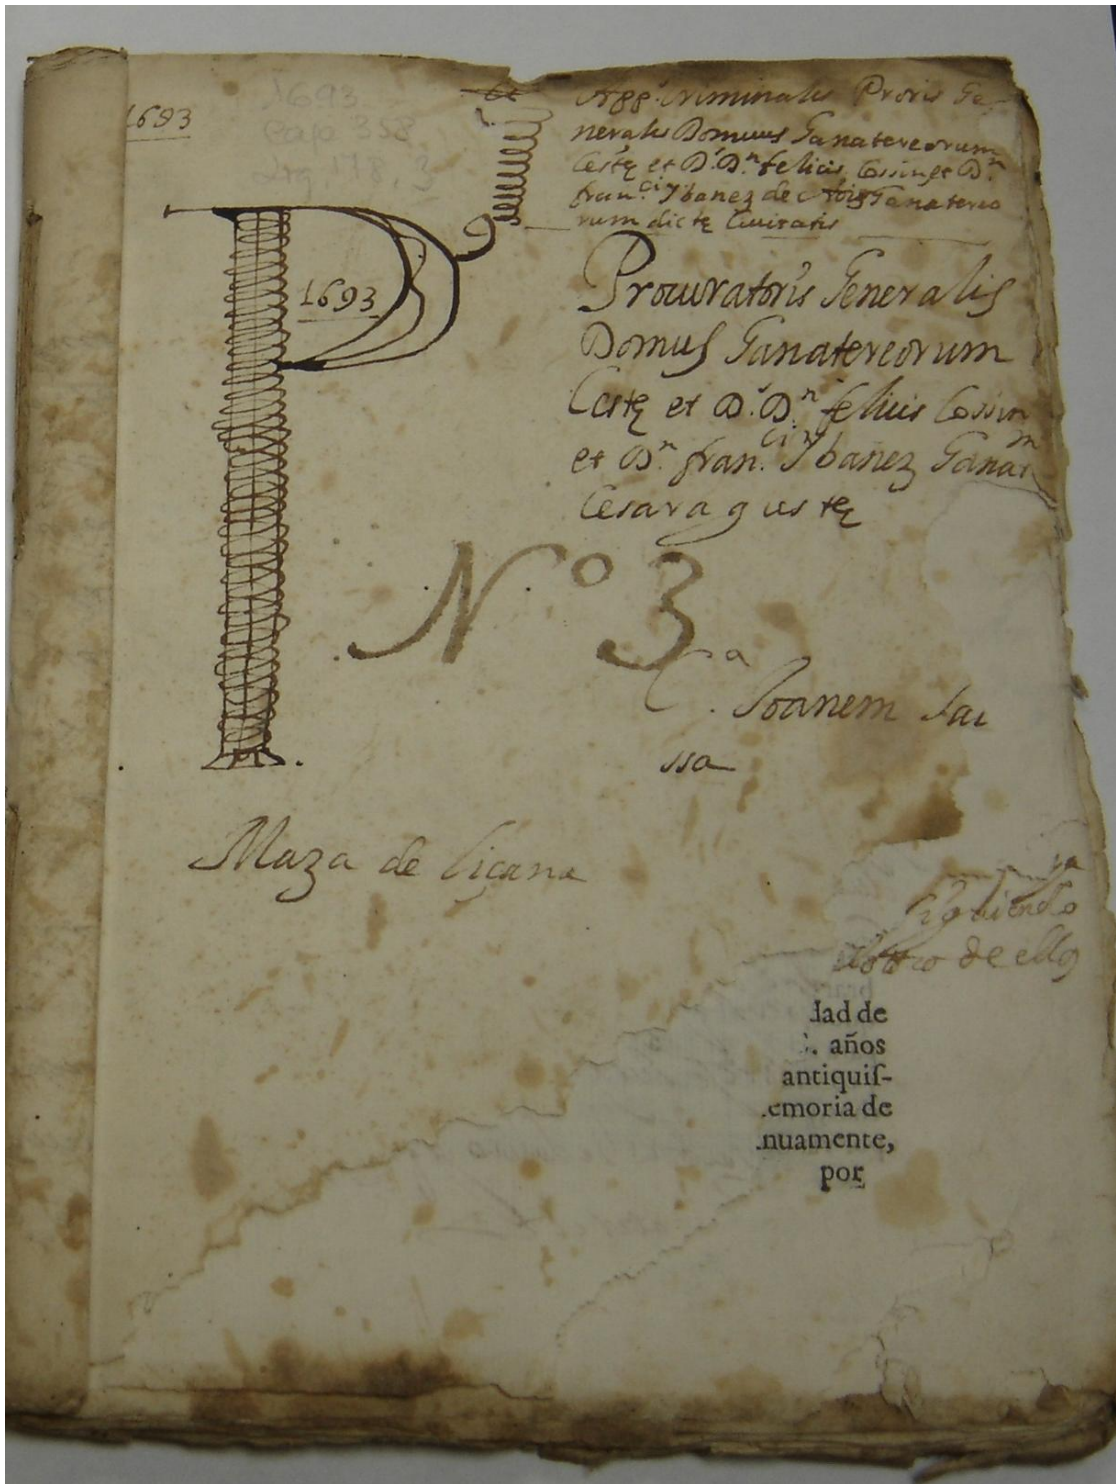 1693
1693
Caja 358
Leg. 178, 3
App. Criminalis Proris Ge-
neralis Domus Ganatereorum
Cestę et D. Dn. felicis Cossin et Dn.
fran.ci Ybanez de Aoiz Ganatereo
rum dictę Ciuitatis
1693
Procuratoris Generalis
Domus Ganatereorum
Cestę et D. Dn. feliuis Cossin
et Dn. fran.ci Ybanez Ganat
Cesaragustę
No 3
Ca. Joanem Lai
ssa
Maza de liçana
siguiendo
de ello
dad de
años
antiquis-
emoria de
nuamente,
por